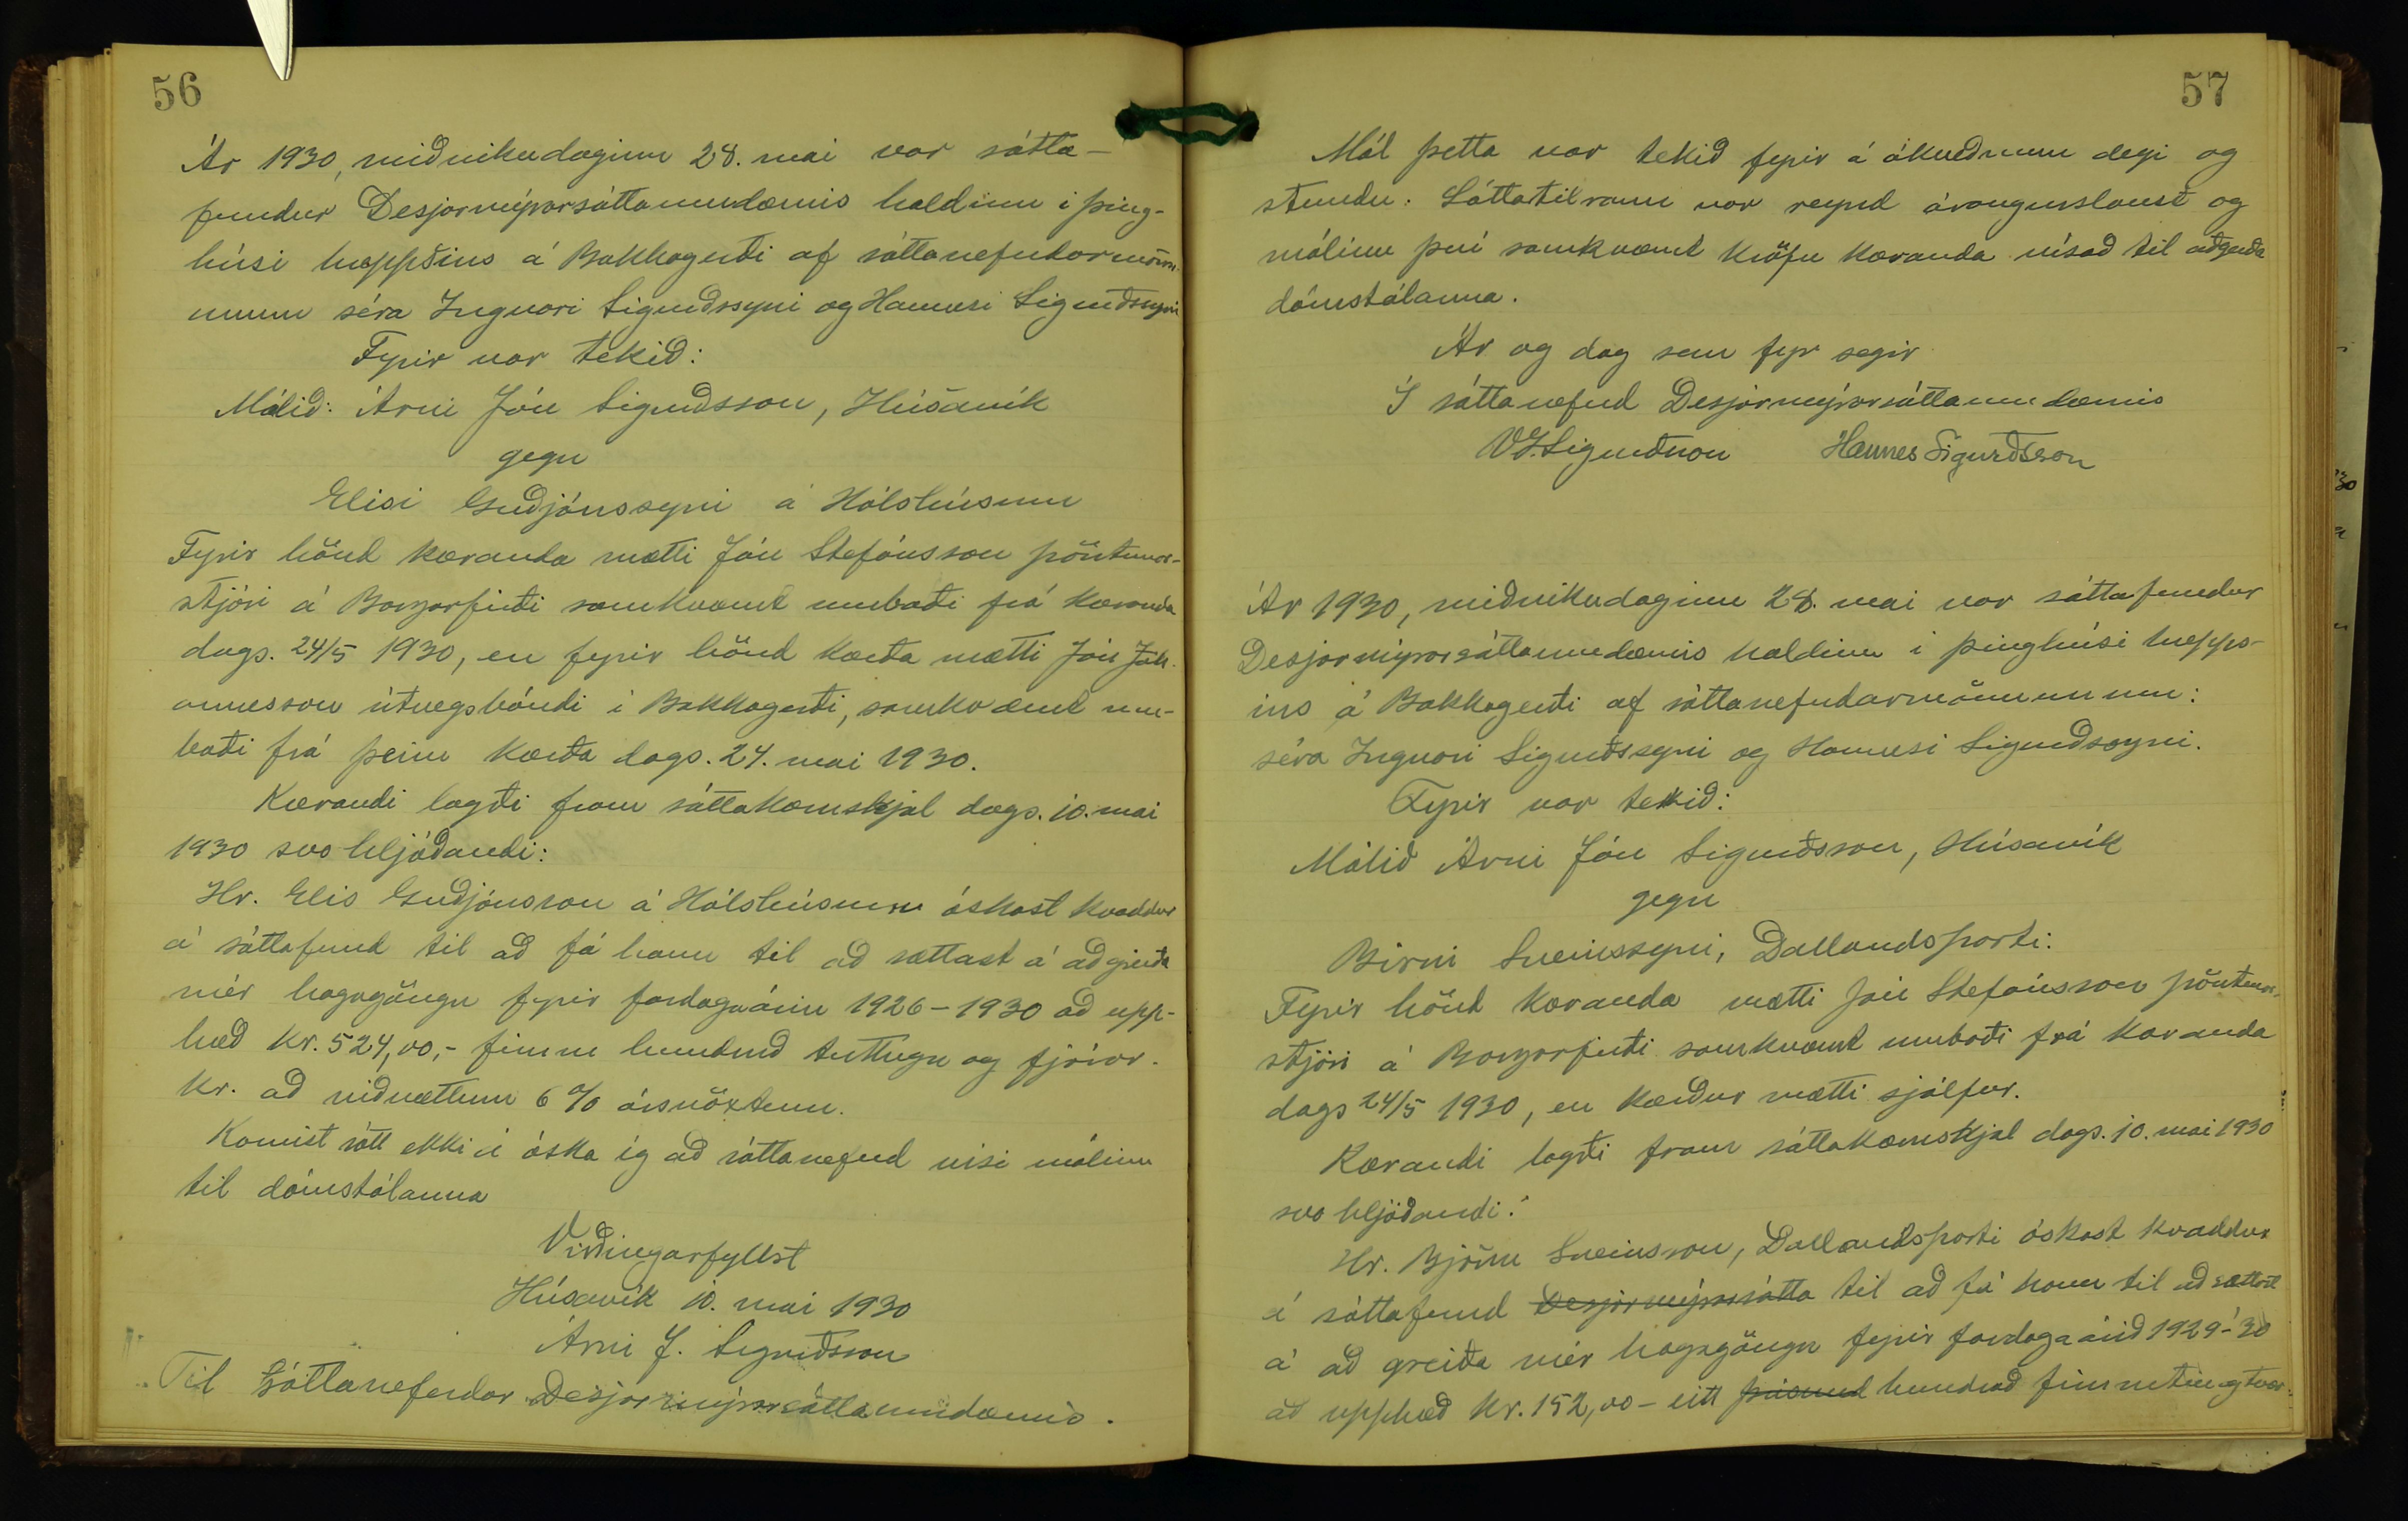 56
Ár 1930, miðvikudaginn 28. mai var sátta-
fundur Desjarmýrarsáttaumdæmis haldinn i þing-
húsi hreppsins á Bakkagerði af sáttanefndarmönn-
unum séra Ingvari Sigurðssyni og Hannesi Sigurðssyni
Fyrir var tekið:
Málið: Árni Jón Sigurðsson, Húsavík
gegn
Elisi Guðjónssyni á Hólshúsum
Fyrir hönd kæranda mætti Jón Stefánsson pöntunar-
stjóri á Borgarfirði samkvæmt umboði frá kæranda
dags. 24/5 1930, en fyrir hönd kærða mætti Jón Jóh-
annesson útvegsbóndi i Bakkagerði, samkvæmt um-
boði frá þeim kærða dags. 24. mai 1930.
Kærandi lagði fram sáttakæruskjal dags. 10. mai
1930 svo hljóðandi:
Hr. Elis Guðjónsson á Hólshúsum óskast kvaddur
á sáttafund til að fá hann til að sættast á að greiða
mér hagagöngu fyrir fardagaárin 1926-1930 að upp-
hæð kr. 524,00,- fimm hundruð tuttugu og fjórar
kr. að viðættum 6% ársvöxtum.
Komist sátt ekki á óska ég að sáttanefnd visi málinu
til dómstólanna
Virðingarfyllst
Húsavík 10. mai 1930
Árni J. Sigurðsson
Til Sáttanefndar Desjarmýrarsáttaumdæmis.
57
Mál þetta var tekið fyrir á ákveðnum degi og
stundu. Sáttatilraun var reynd árangurslaust og
málinu því samkvæmt kröfu kæranda vísað til aðgerða
dómstólanna.
Ár og dag sem fyr segir
Í sáttanefnd Desjarmýrarsáttaumdæmis
V.I. Sigurðsson Hannes Sigurðsson
Ár 1930, miðvikudaginn 28. mai var sáttafundur
Desjarmýrarsáttaumdæmis haldinn i þinghúsi hrepps-
ins á Bakkagerði af sáttanefndarmönnunum:
séra Ingvari Sigurðssyni og Hannesi Sigurðssyni.
Fyrir var tekið:
Málið Árni Jón Sigurðsson, Húsavík
gegn
Birni Sveinssyni, Dallandsparti:
Fyrir hönd kæranda mætti Jón Stefánsson pöntunar-
stjóri á Borgarfirði samkvæmt umboði frá kæranda
dags 24/5 1930, en kærður mætti sjálfur.
Kærandi lagði fram sáttakæruskjal dags. 10. mai 1930
svo hljóðandi:
Hr. Björn Sveinsson, Dallandsparti óskast kvaddur
á sáttafund Desjarmýrarsátta til að fá hann til að sættast
á að greiða mér hagagöngu fyrir fardagaárið 1929-'30
að upphæð kr. 152,00 - eitt þúsund hundrað fimmtíu og tvær